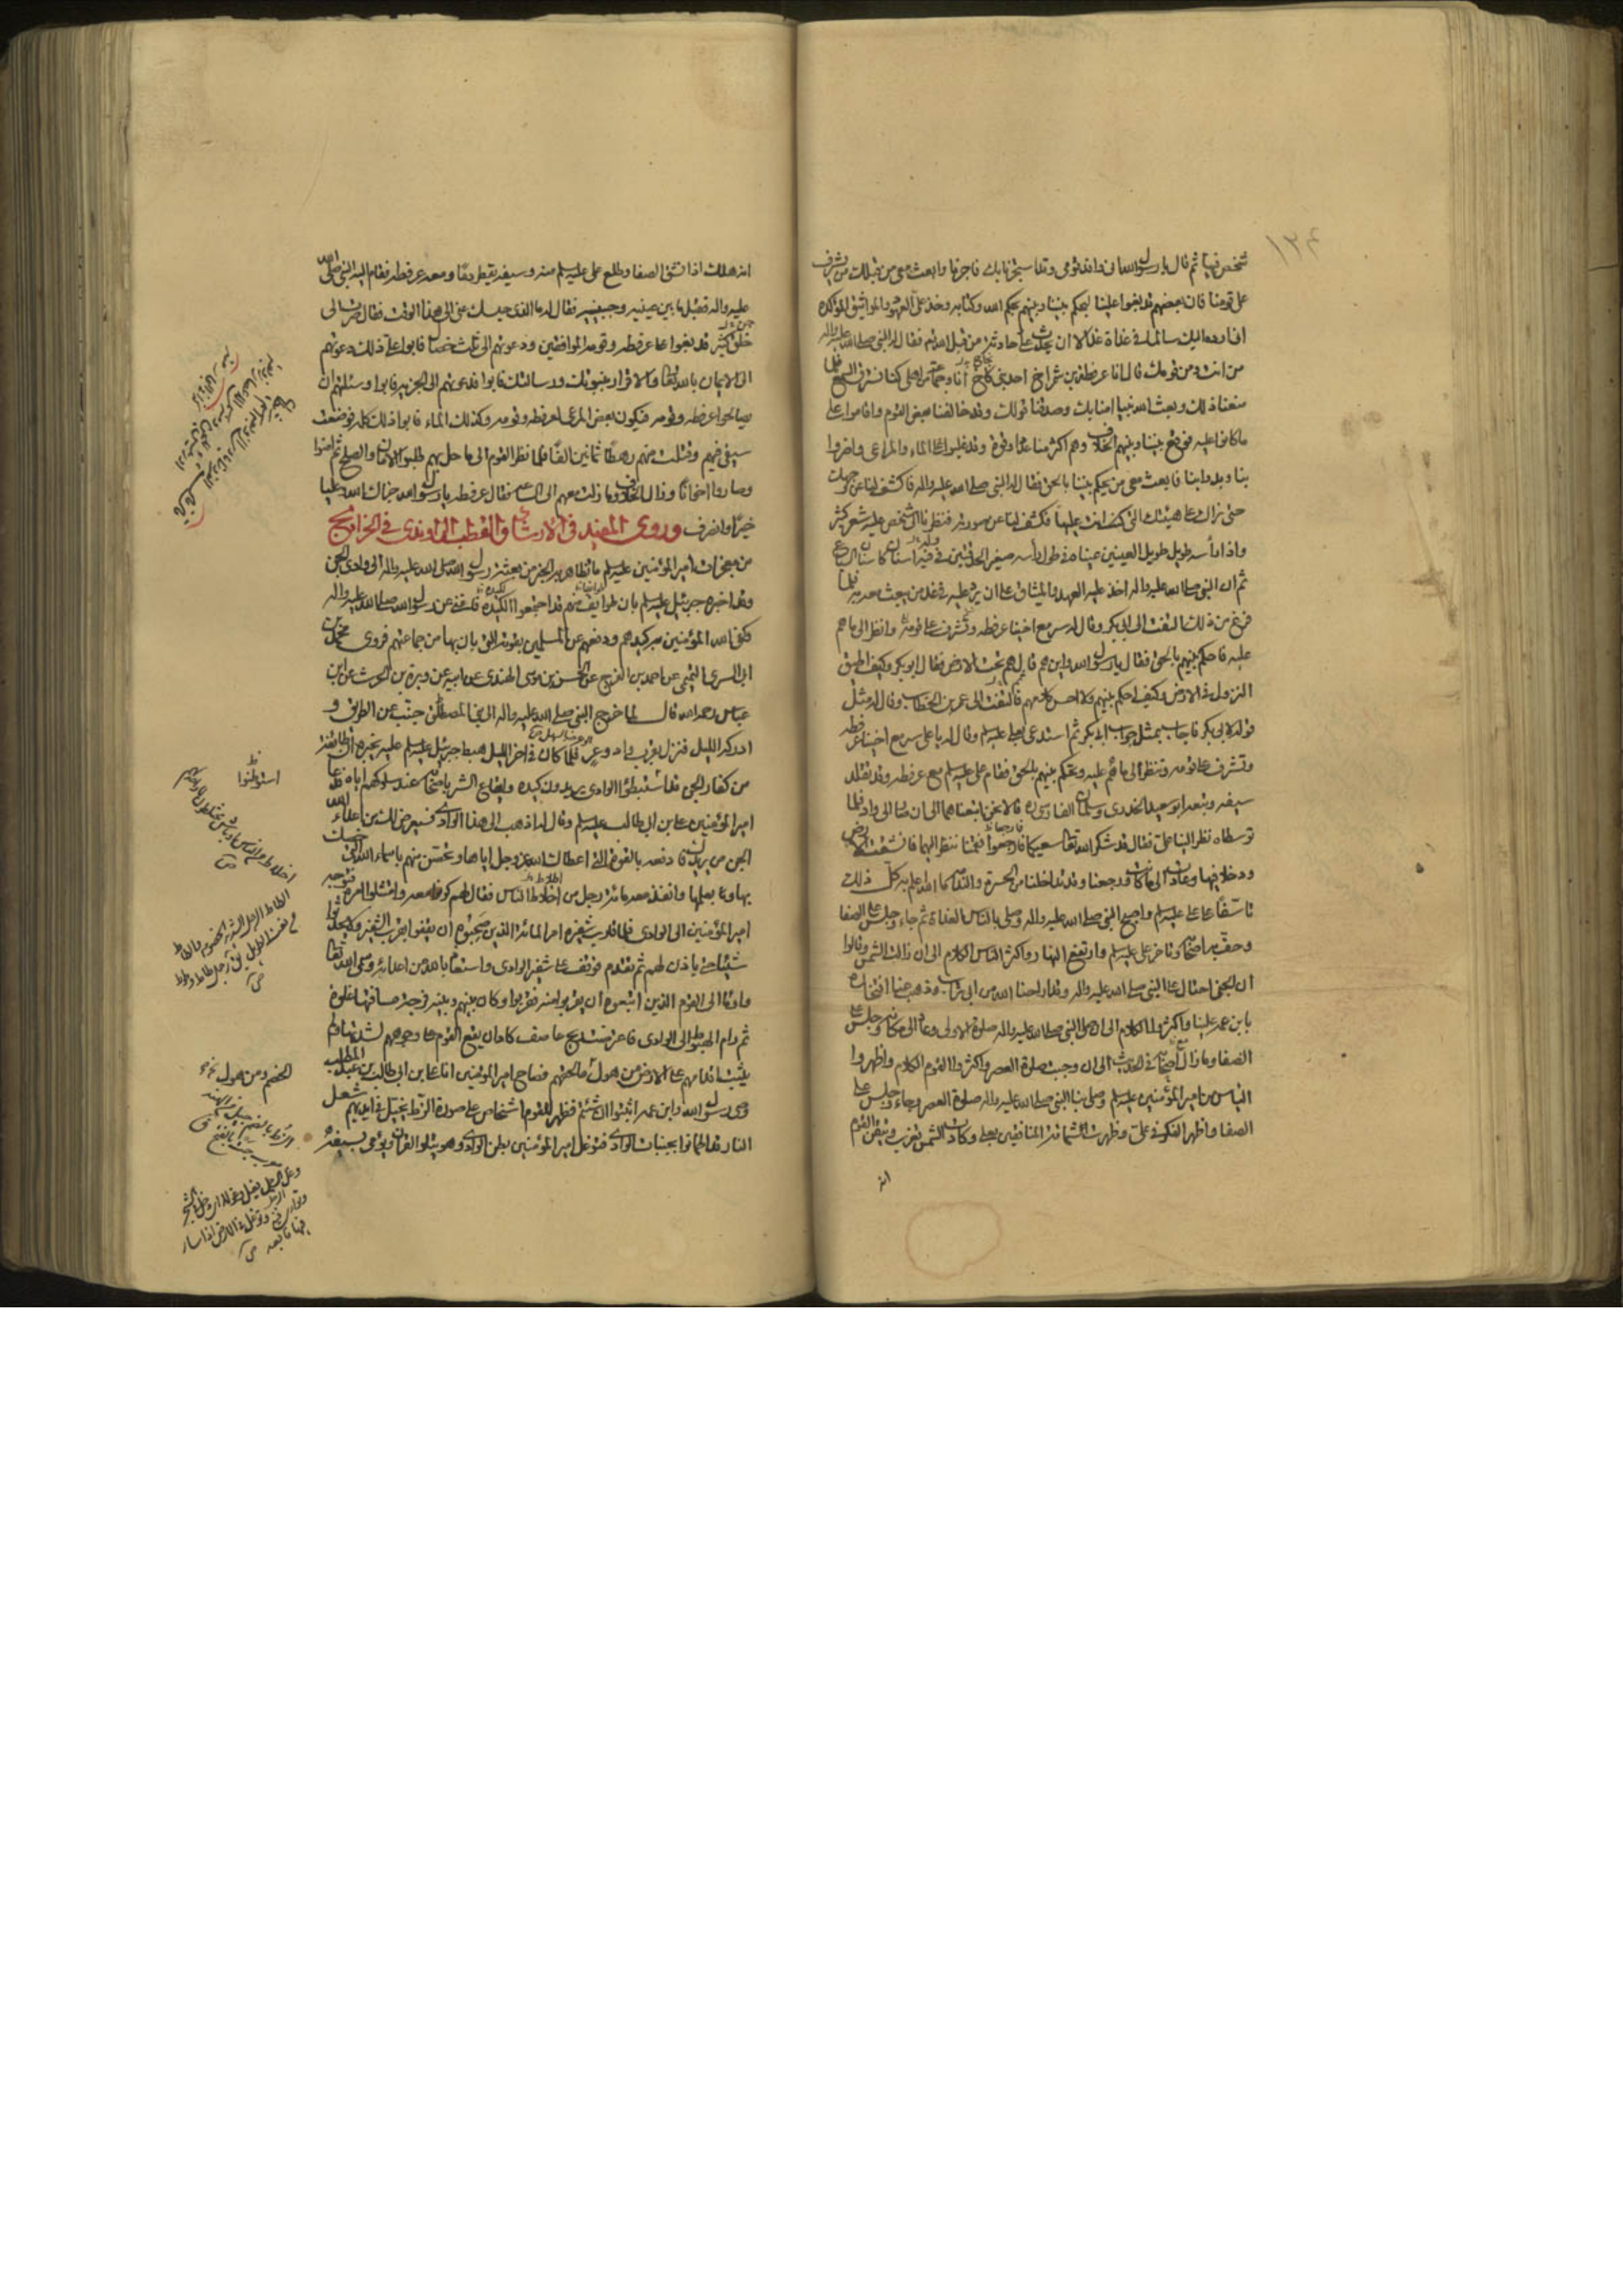 شخص فيها ثم قال يا رسول الله اني وافد قومي وقد استجرنا بك فاجرنا وابعث معي من قبلك من يشرف
على قومنا فان بعضهم قد بغوا علينا ليحكم بيننا وبينهم بحكم الله وكتابه وخذ علي العهود والمواثيق المؤكدة
ان ارده اليك سالما في غداة غد الا ان يحدث علي حادثة من قبل الله فقال له النبي صلى الله عليه واله
من انت ومن قومك قال انا عرفطة بن شمراخ احد بني نجاح انا وجماعة من اهلي كنا نسترق السمع فلما
منعنا ذلك وبعث الله نبيا امنا بك وصدقنا قولك وقد خالفنا بعض القوم واقاموا على
ما كانوا عليه فوقع بيننا وبينهم الخلاف وهم اكثر منا عددا وقوة وقد غلبوا على الماء والمراعي واضروا
بنا وبدوابنا فابعث معي من يحكم بيننا بالحق فقال له النبي صلى الله عليه واله فاكشف لنا عن وجهك
حتى نراك على هيئتك التي انت عليها فكشف لنا عن صورته فنظرنا الى شخص عليه شعر كثير
واذا رأسه طويل طويل العينين عيناه في طول رأسه صغير الحدقتين في فيه اسنان كاسنان السباع
ثم ان النبي صلى الله عليه واله اخذ عليه العهد والميثاق على ان يرد عليه في غد من يبعث معه به فلما
فرغ من ذلك التفت الى ابي بكر وقال له سر مع اخينا عرفطة وتشرف على قومه وانظر الى ما هم
عليه فاحكم بينهم بالحق فقال يا رسول الله واين هم قال هم تحت الارض فقال ابو بكر وكيف اطيق
النزول في الارض وكيف احكم بينهم ولا احسن كلامهم فالتفت الى عمر بن الخطاب وقال له مثل
قوله لابي بكر فاجاب بمثل جواب ابي بكر ثم استدعى بعلي عليه السلم وقال له يا علي سر مع اخينا عرفطة
وتشرف على قومه وتنظر الى ما هم عليه وتحكم بينهم بالحق فقام علي عليه السلم مع عرفطة وقد تقلد
سيفه وتبعه ابو سعيد الخدري وسلمان الفارسي ره قالا نحن اتبعناهما الى ان صارا الى واد فلما
توسطاه نظر الينا علي فقال قد شكر الله تعالى سعيكما فارجعوا فقمنا ننظر اليهما فانشقت الارض
ودخلا فيها وعادت الى ما كانت ورجعنا وقد تداخلنا من الحسرة والندامة ما الله اعلم به كل ذلك
تاسفا على علي عليه السلم واصبح النبي صلى الله عليه واله وصلى بالناس الغداة ثم جاء وجلس على الصفا
وحف به اصحابه وتاخر علي عليه السلم وارتفع النهار واكثر الناس الكلام الى ان زالت الشمس وقالوا
ان الجني احتال على النبي صلى الله عليه واله وقد اراحنا الله من ابي تراب وذهب عنا افتخاره
بابن عمه علينا واكثروا الكلام الى ان صلى النبي صلى الله عليه واله صلوة الاولى وعاد الى مكانه وجلس على
الصفا وما زال اصحابه في الحديث الى ان وجبت صلوة العصر واكثر القوم الكلام واظهروا
الياس من امير المؤمنين عليه السلم وصلى بنا النبي صلى الله عليه واله صلوة العصر وجاء وجلس على
الصفا واظهر الفكر في علي وظهرت شماتة المنافقين بعلي وكادت الشمس تغرب وتيقن القوم
انه
انه هلك اذ انشق الصفا وطلع علي عليه السلم منه وسيفه يقطر دما ومعه عرفطة فقام اليه النبي صلى الله
عليه واله فقبل ما بين عينيه وجبينيه فقال له ما الذي حبسك عني الى هذا الوقت فقال صرت الى
خلق كثير قد بغوا على عرفطة وقومه الموافقين ودعوتهم الى ثلث خصال فابوا علي ذلك دعوتهم
الى الايمان بالله تعالى والاقرار بنبوتك ورسالتك فابوا فدعوتهم الى الجزية فابوا وسئلتهم ان
يصالحوا عرفطة وقومه فيكون بعض المرعى لعرفطة وقومه وكذلك الماء فابوا ذلك كله فوضعت
سيفي فيهم وقتلت منهم رهطا ثمانين الفا فلما نظر القوم الى ما حل بهم طلبوا الامان والصلح ثم امنوا
وصاروا اخوانا وزال الخلاف وما زلت معهم الى الساعة فقال عرفطة يا رسول الله جزاك الله وعليا
خيرا وانصرف وروى المفيد في الارشاد والقطب الراوندي في الخرايج
من معجزات امير المؤمنين عليه السلم ما تظاهر به الخبر من بعثة رسول الله صلى الله عليه واله الى وادي الجن
وقد اخبره جبرئيل عليه السلم بان طوايف منهم قد اجتمعوا لكيده فاغنى عن رسول الله صلى الله عليه واله
وكفى الله المؤمنين به كيدهم ودفعهم عن المسلمين بقوته التي بان بها من جماعتهم فروى محمد بن
ابي السري التميمي عن احمد بن الفرج عن الحسن بن موسى الهندي عن ابيه عن وبرة بن الحرث عن ابن
عباس رحمه الله قال لما خرج النبي صلى الله عليه واله الى بني المصطلق جنب عن الطريق و
ادركه الليل فنزل بقرب واد وعر فلما كان في اخر الليل هبط جبرئيل عليه السلم عليه يخبره ان طائفة
من كفار الجن قد استبطنوا الوادي يريدون كيده وايقاع الشر باصحابه عند سلوكهم اياه فدعا
امير المؤمنين علي بن ابي طالب عليه السلم وقال له اذهب الى هذا الوادي فسيعرض لك من اعداء الله
الجن من يريدك فادفعه بالقوة التي اعطاك الله عز وجل اياها وتحصن منهم باسماء الله التي خصك
بها وبعلمها وانفذ معه مائة رجل من اخلاط الناس فقال لهم كونوا معه وامتثلوا امره فتوجه
امير المؤمنين الى الوادي فلما قارب شفيره امر المائة الذين صحبوه ان يقفوا بقرب الشفير ولا يحدثوا
شيئا حتى ياذن لهم ثم تقدم فوقف على شفير الوادي واستعاذ بالله من اعدائه وسمى الله تعالى
واومأ الى القوم الذين اتبعوه ان يقربوا منه فقربوا وكان بينهم وبينه فرجة مسافتها غلوة
ثم رام الهبوط الى الوادي فاعترضت ريح عاصف كاد ان يقع القوم على وجوههم لشدتها ولم
يثبت اقدامهم على الارض من هول ما لحقهم فصاح امير المؤمنين انا علي بن ابي طالب بن عبد المطلب
وصي رسول الله وابن عمه اثبتوا ان شئتم فظهر للقوم اشخاص على صورة الزط يخيل في ايديهم شعل
النار قد اطمانوا بجنبات الوادي فتوغل امير المؤمنين بطن الوادي وهو يتلو القران ويومي بسيفه
استوطنوا
الخصم ومن هول